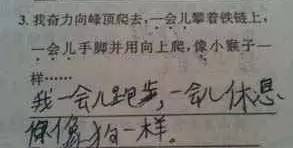 3. 我奋力向峰顶爬去,一会儿攀着铁链上,
一会儿手脚并用向上爬,像小猴子一
样……
我一会儿跑步,一会儿休息
像狗一样。